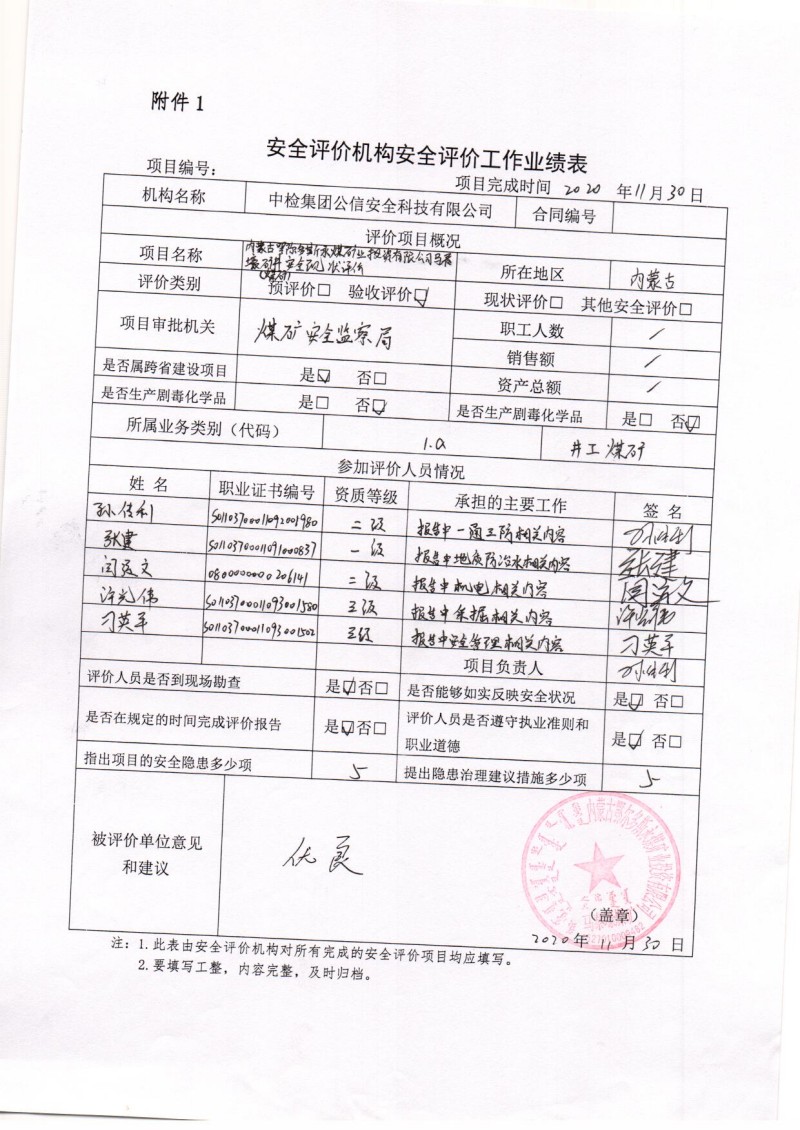 附件1
安全评价机构安全评价工作业绩表
项目编号： 项目完成时间 2020 年 11 月 30 日
机构名称 中检集团公信安全科技有限公司 合同编号
评价项目概况
项目名称 内蒙古鄂尔多斯永煤矿业投资有限公司马泰壕矿井安全现状评价（煤矿） 所在地区 内蒙古
评价类别 预评价□ 验收评价☑ 现状评价□ 其他安全评价□
项目审批机关 煤矿安全监察局 职工人数 /
销售额 /
资产总额 /
是否属跨省建设项目 是☑ 否□
是否生产剧毒化学品 是□ 否☑ 是否生产剧毒化学品 是□ 否☑
所属业务类别（代码） 1.a 井工煤矿
参加评价人员情况
姓名 职业证书编号 资质等级 承担的主要工作 签名
孙传利 S01103700011092001980 二级 报告中一通三防相关内容 孙传利
张建 S01103700011091000837 一级 报告中地质防治水相关内容 张建
闫孟文 0800000000206141 二级 报告中机电相关内容
许光伟 S01103700011093001580 三级 报告中采掘相关内容 许光伟
刁英军 S01103700011093001502 三级 报告中安全管理相关内容 刁英军
项目负责人 孙传利
评价人员是否到现场勘查 是☑否□ 是否能够如实反映安全状况 是☑ 否□
是否在规定的时间完成评价报告 是☑否□ 评价人员是否遵守执业准则和职业道德 是☑ 否□
指出项目的安全隐患多少项 5 提出隐患治理建议措施多少项 5
被评价单位意见和建议 优良
（盖章）
2020 年 11 月 30 日
注：1.此表由安全评价机构对所有完成的安全评价项目均应填写。
2.要填写工整，内容完整，及时归档。